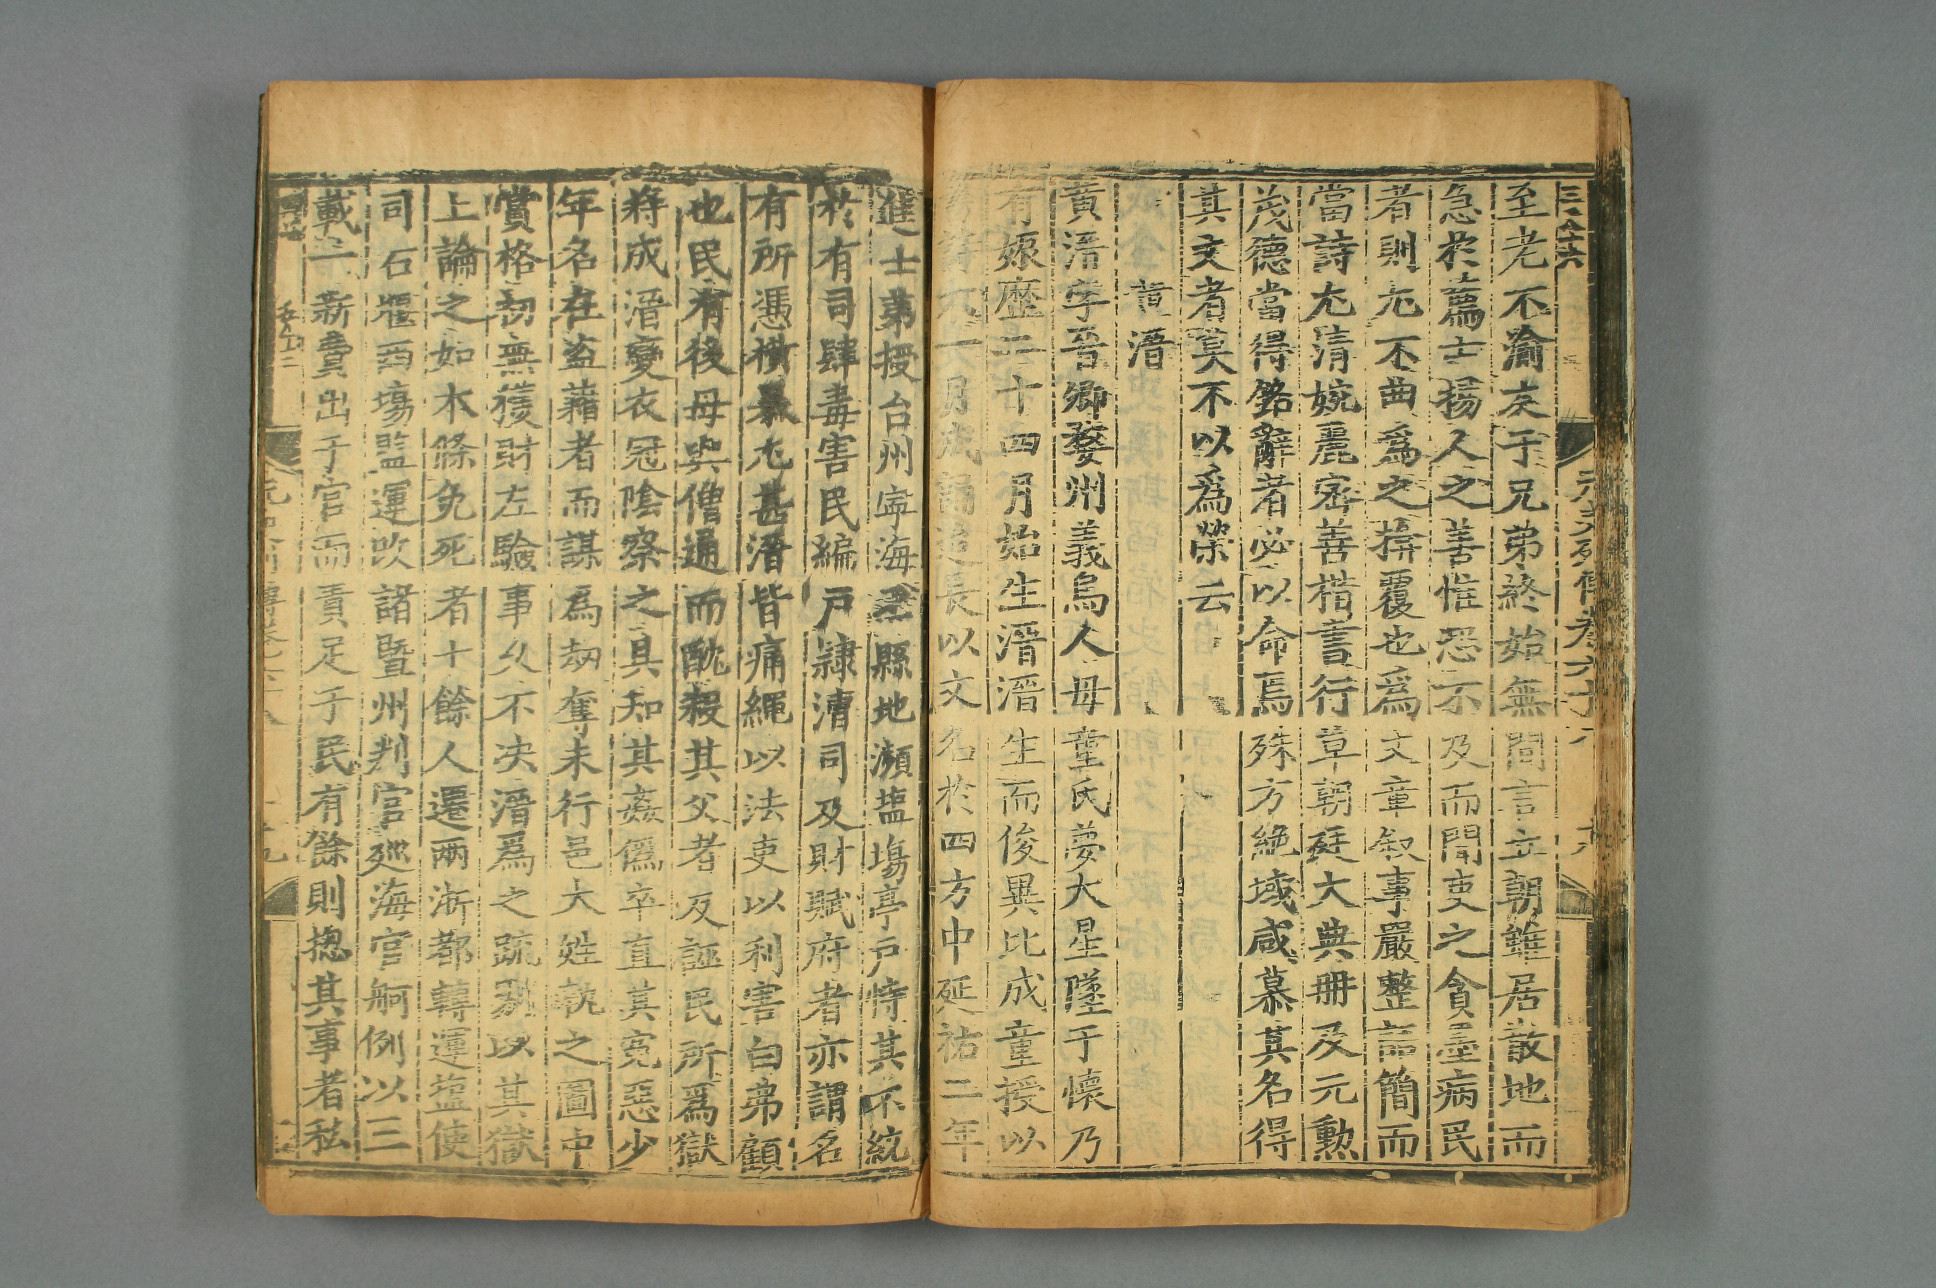 至老不渝友于兄弟終始無間言立朝雖居散地而
急於薦士揚人之善惟恐不及而聞吏之貪墨病民
者則尤不曲爲之揜覆也爲文章叙事嚴整語簡而
當詩尤清婉麗密善楷書行草朝廷大典冊及元勲
茂德當得銘辭者必以命焉殊方絶域咸慕其名得
其文者莫不以爲榮云
黄溍
黄溍字晉卿婺州義烏人母童氏夢大星墜于懷乃
有娠歷二十四月始生溍溍生而俊異比成童授以
書詩不一月成誦迨長以文名於四方中延祐二年
進士第授台州寧海縣地瀕塩塲亭戸恃其不統
於有司肆毒害民編戸隷漕司及財賦府者亦謂名
有所憑横暴尤甚溍皆痛繩以法吏以利害白弗顧
也民有後母與僧通而酖殺其父者反誣民所爲獄
将成溍變衣冠陰察之具知其姦僞卒直其寃惡少
年名在盗藉者而謀爲刼奪未行邑大姓執之圖中
賞格初無獲財左驗事久不决溍爲之疏剔以其獄
上論之如本條免死者十餘人遷兩浙都轉運塩使
司石堰西塲監運改諸曁州判官廵海官舸例以三
載一新費出于官而責足于民有餘則揔其事者私